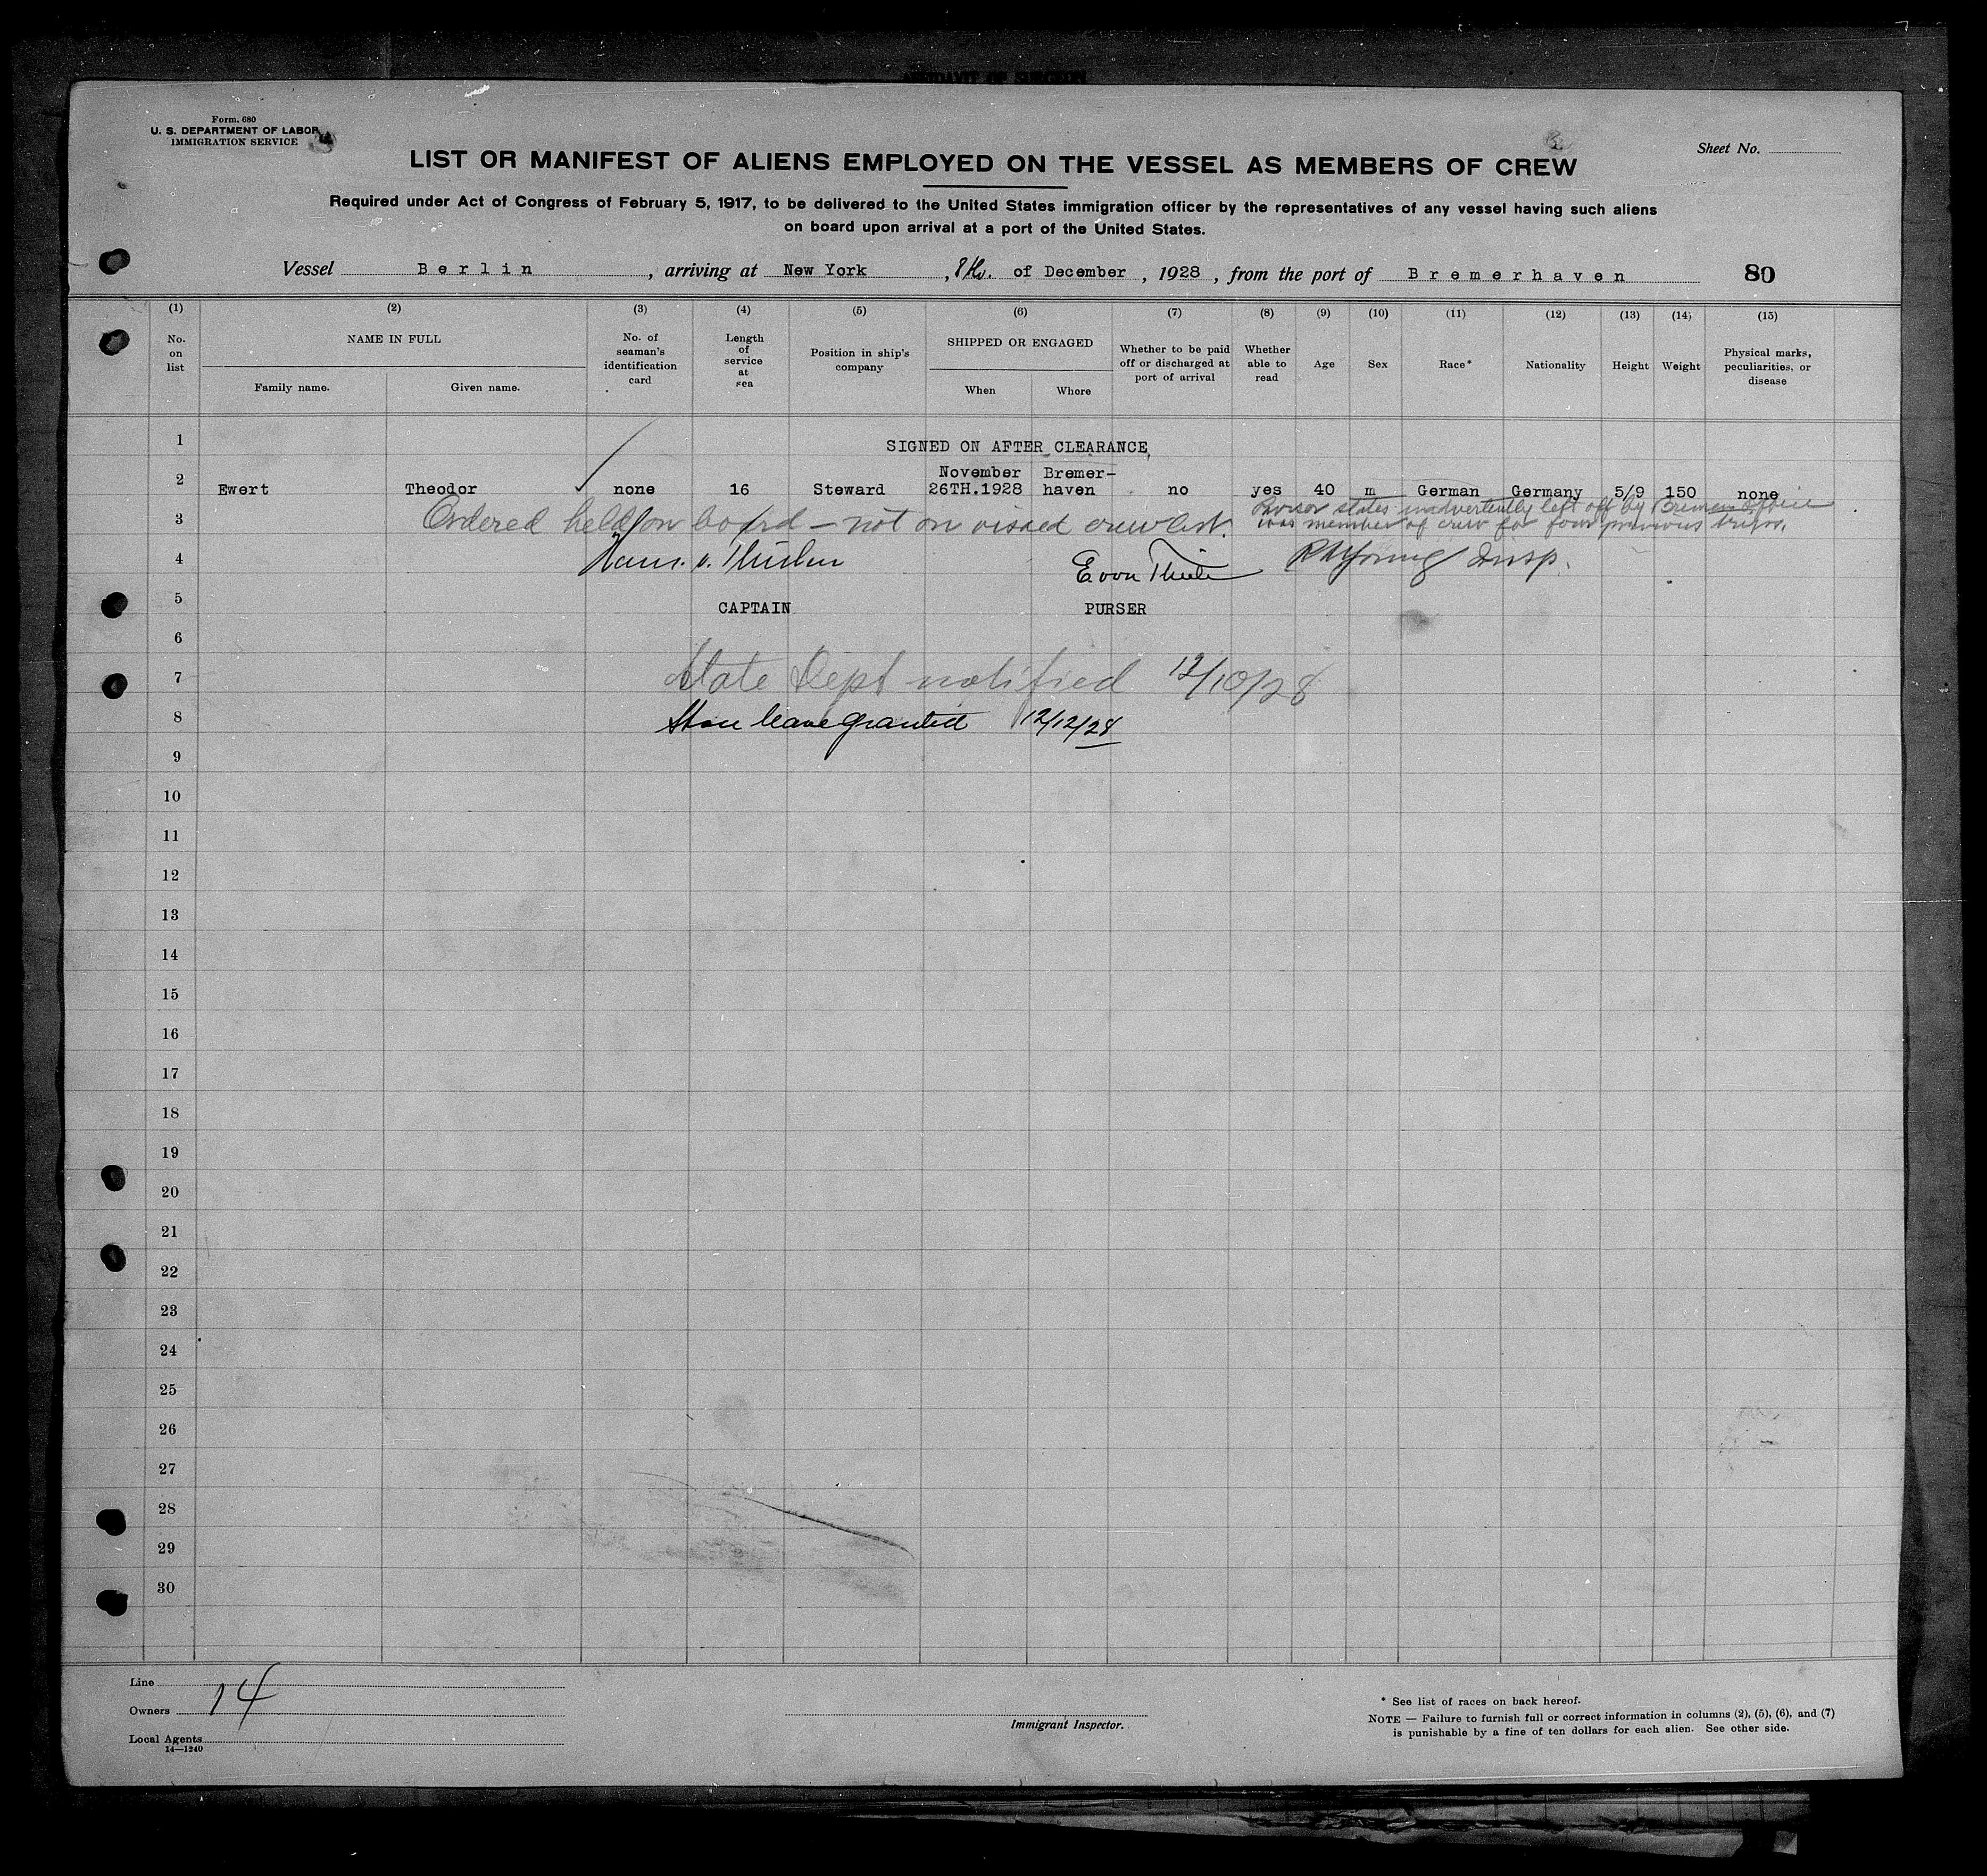 Form. 680
U. S. DEPARTMENT OF LABOR
IMMIGRATION SERVICE
Sheet No.
LIST OR MANIFEST OF ALIENS EMPLOYED ON THE VESSEL AS MEMBERS OF CREW
Required under Act of Congress of February 5, 1917, to be delivered to the United States immigration officer by the representatives of any vessel having such aliens
on board upon arrival at a port of the United States.
Vessel Berlin, arriving at New York, 8th. of December, 1928, from the port of Bremerhaven 80
(1) (2) (3) (4) (5) (6) (7) (8) (9) (10) (11) (12) (13) (14) (15)
No. on list
NAME IN FULL
Family name. Given name.
No. of seaman's identification card
Length of service at sea
Position in ship's company
SHIPPED OR ENGAGED
When Where
Whether to be paid off or discharged at port of arrival
Whether able to read
Age
Sex
Race*
Nationality
Height
Weight
Physical marks, peculiarities, or disease
1 SIGNED ON AFTER CLEARANCE
2 Ewert Theodor none 16 Steward November 26TH.1928 Bremer-haven no yes 40 m German Germany 5/9 150 none
3 Ordered held on board - not on visaed crew list.
states inadvertently left off by Bremen Office
was member of crew for four previous trips.
4 Insp.
5 CAPTAIN PURSER
6
7 State Dept notified 12/10/28
8 Shore leave granted 12/12/28
9
10
11
12
13
14
15
16
17
18
19
20
21
22
23
24
25
26
27
28
29
30
Line
Owners 14
Local Agents
14—1240
Immigrant Inspector.
* See list of races on back hereof.
NOTE — Failure to furnish full or correct information in columns (2), (5), (6), and (7)
is punishable by a fine of ten dollars for each alien. See other side.